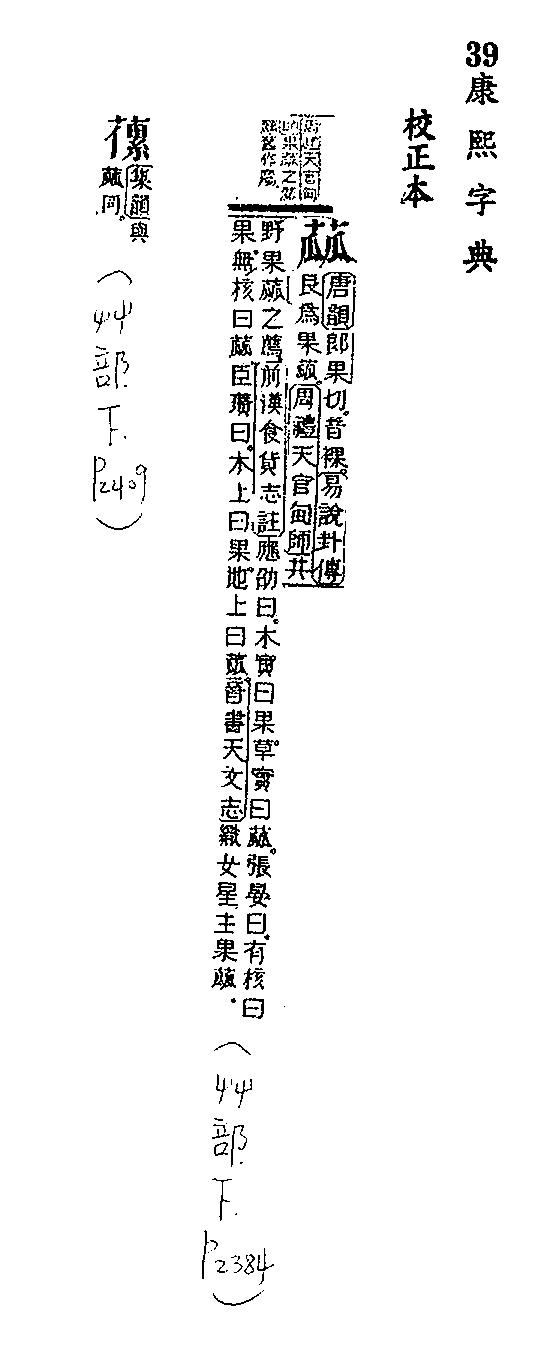 39康熙字典
校正本
周禮天官甸
蓏
唐韻郎果切。音裸。易說卦傳
艮為果蓏。周禮天官甸師共
野果蓏之薦。前漢食貨志註應劭曰。木實曰果。草實曰蓏。張晏曰。有核曰
果。無核曰蓏。臣瓚曰。木上曰果。地上曰蓏。晉書天文志織女星主果蓏。
(艸部下.P2384)
集韻與
蓏同。
(艸部下.P2409)